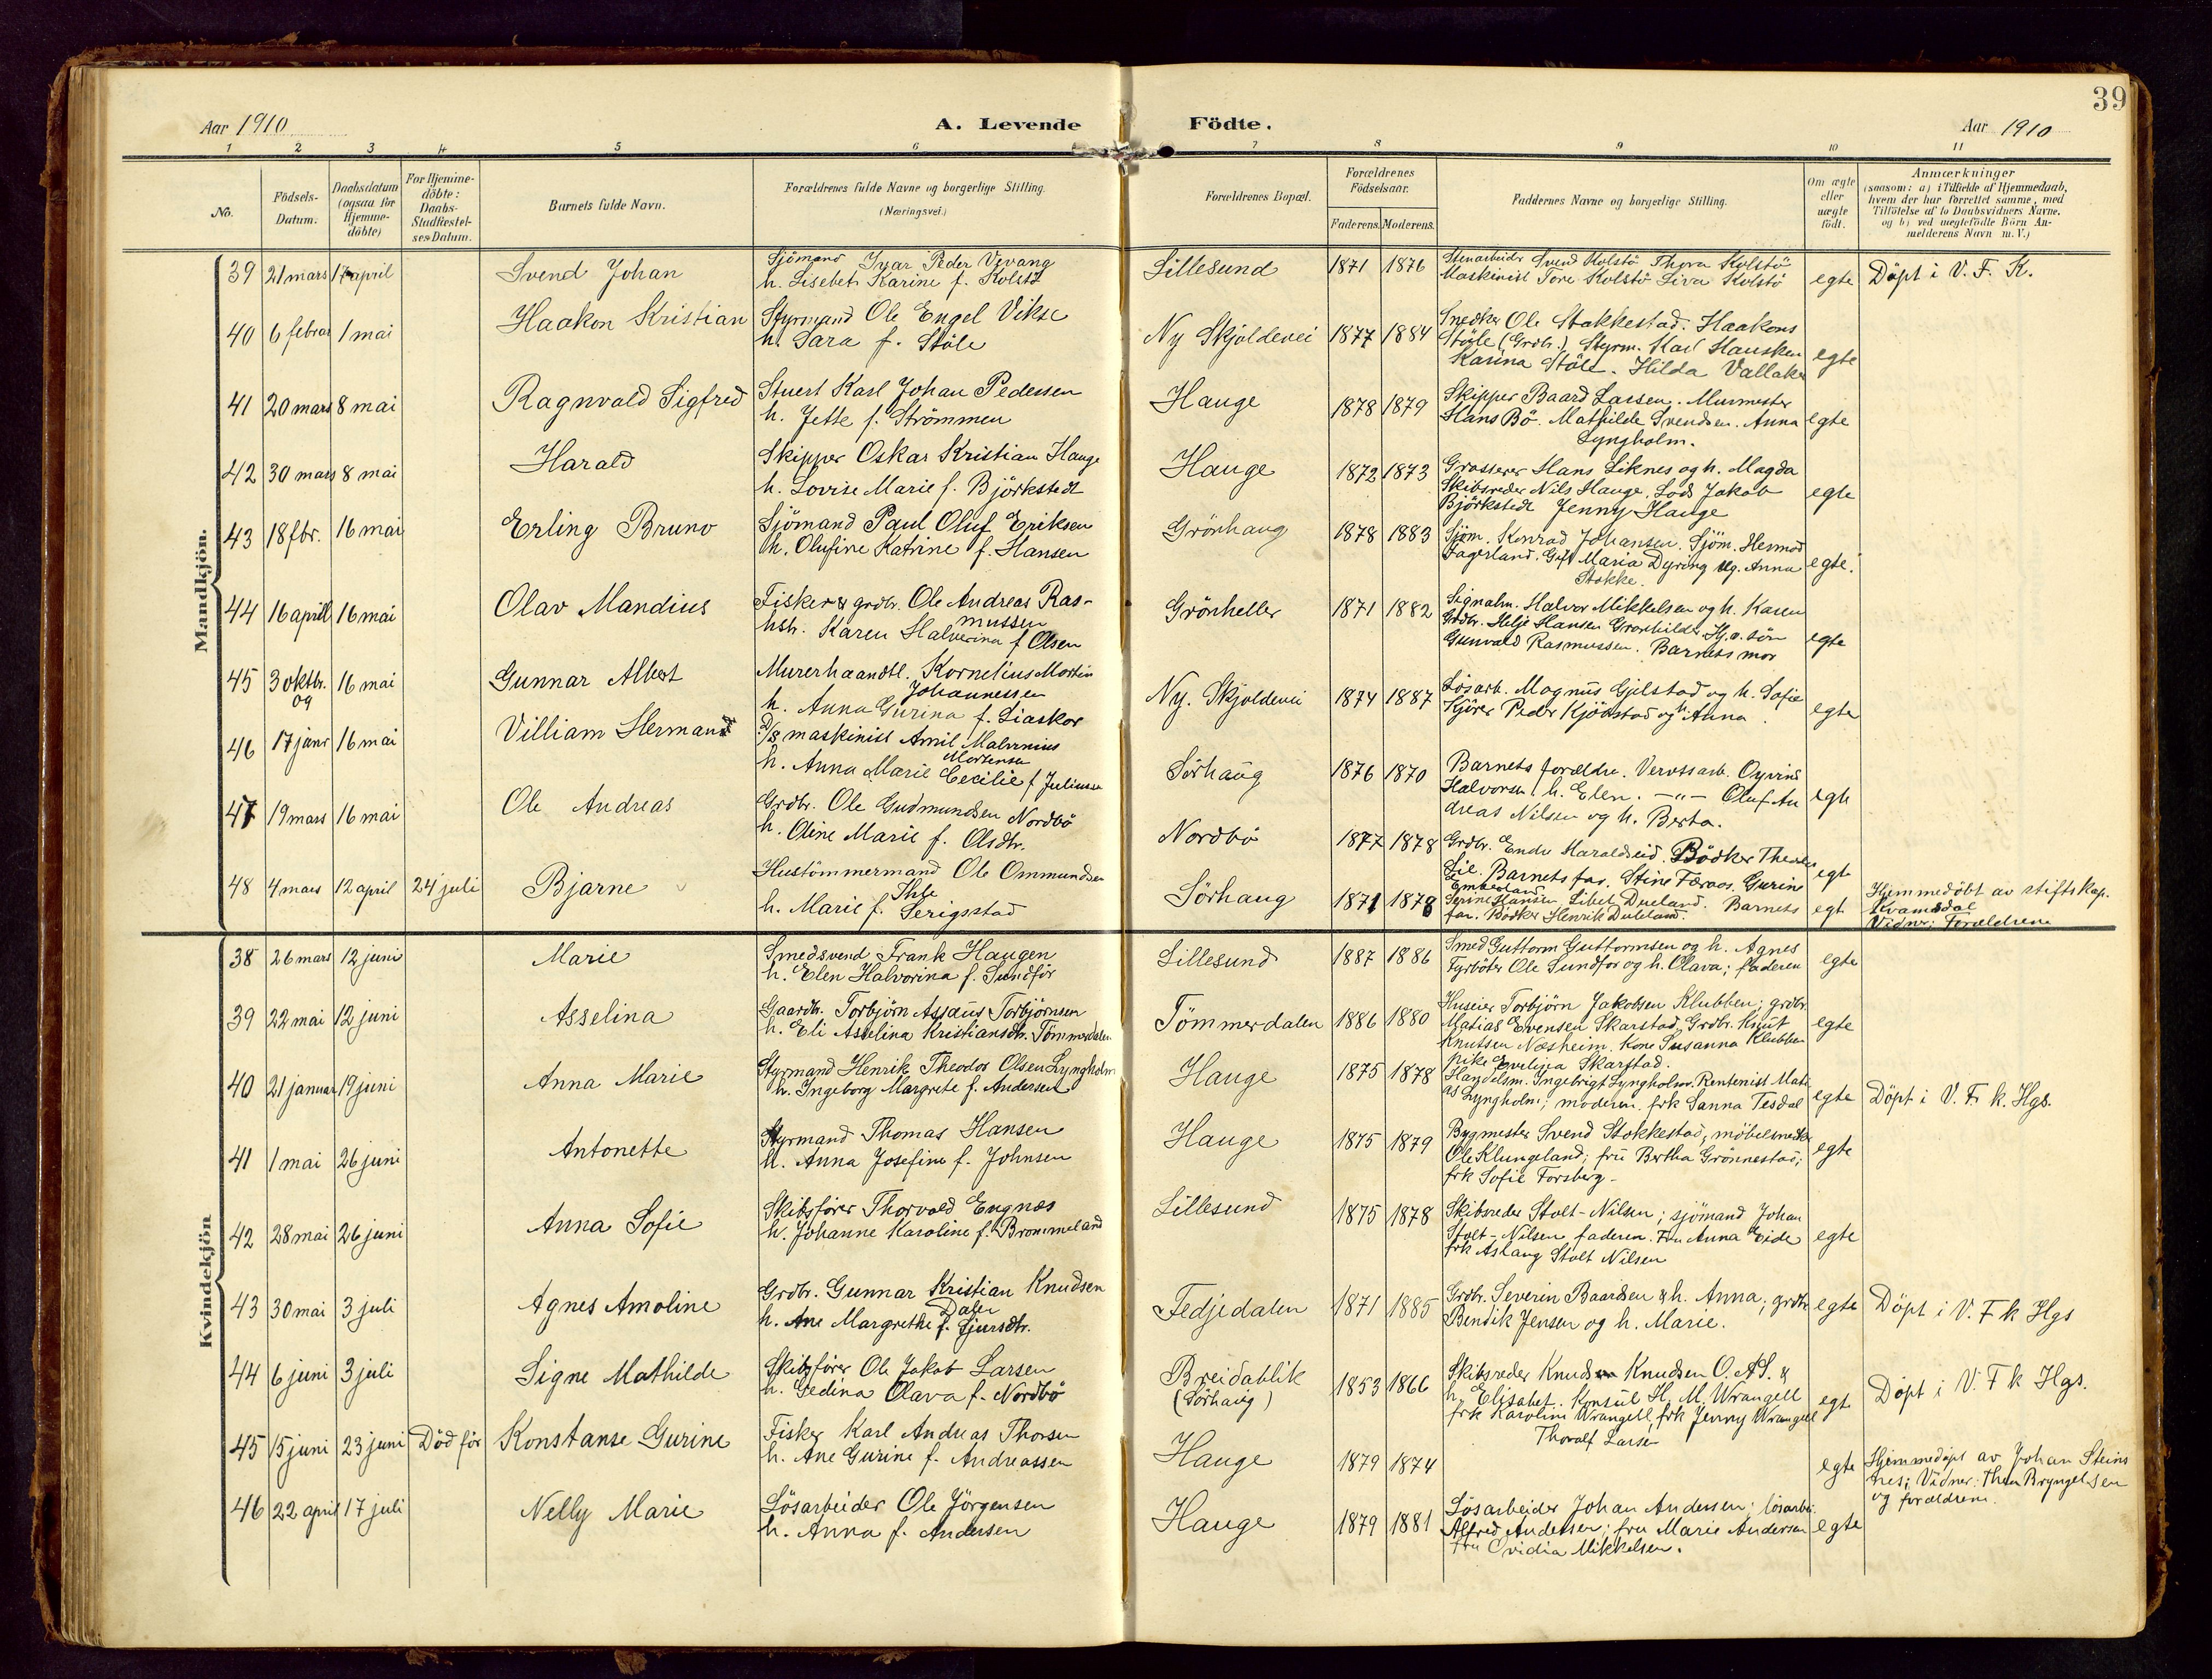 39
Aar 1910
A. Levende Födte.
Aar 1910
1 2 3 4 5 6 7 8 9 10 11
No.
Födsels-Datum.
Daabsdatum (ogsaa for Hjemme-döbte)
For Hjemme-döbte: Daabs-Stadfæstel-ses-Datum.
Barnets fulde Navn.
Forældrenes fulde Navne og borgerlige Stilling.
(Næringsvei.)
Forældrenes Bopæl.
Forældrenes Födselsaar.
Faderens. Moderens.
Faddernes Navne og borgerlige Stilling.
Om ægte eller uægte födt.
Anmærkninger
(saasom: a) i Tilfælde af Hjemmedaab,
hvem der har forrettet samme, med
Tilföielse af to Daabsvidners Navne,
og b) ved uægtefödte Börn An-
melderens Navn m. V.)
Mandkjön.
39 21 mars 17 april Svend Johan
Sjömand Ivar Peder Vevang
h. Lisebet Karine f. Kolstö
Lillesund 1871 1876
Stenarbeider Svend Kolstö Thora Kolstö
Maskinist Tore Kolstö Liva Kolstö
egte Döpt i V. F. K.
40 6 februar 1 mai Haakon Kristian
Styrmand Ole Engel Vikse
h. Sara f. Stöle
Ny Skjoldevei 1877 1884
Snedker Ole Stakkestad. Haakons
Stöle (Grdb.) Styrm. Karl Hausken
Karina Stöle. Hilda Vallaker
egte
41 20 mars 8 mai Ragnvald Sigfred
Stuert Karl Johan Pedersen
h. Jette f. Strömmen
Hauge 1878 1879
Skipper Baard Larsen. Murmester
Hans Bö. Mathilde Svendsen. Anna
Lyngholm.
egte
42 30 mars 8 mai Harald
Skipper Oskar Kristian Hauge
h. Lovise Marie f. Björkstedt
Hauge 1872 1873
Grosserer Hans Liknes og h. Magda
Skibsreder Nils Hauge. Lods Jakob
Björkstedt Jenny Hauge
egte
43 18 fbr. 16 mai Erling Bruno
Sjömand Paul Oluf Eriksen
h. Olufine Katrine f. Hansen
Grönhaug 1878 1883
Sjöm. Konrad Johansen. Sjöm. Hermod
Fagerland. Gift Maria Dyring Ug. Anna
Stokke.
egte.
44 16 april 16 mai Olav Mandius
Fisker & grdbr. Ole Andreas Ras-
mussen
hstr. Karen Halverina f Olsen
Grönheller 1871 1882
Signalm. Halvor Mikkelsen og h. Karen
Grdbr. Helje Hansen Gronhilder Hj.a. sön
Gunvald Rasmussen. Barnets mor
egte
45 3 oktbr. 16 mai Gunnar Albert
og
Murerhaandtl. Kornelius Martin
Johannessen
h. Anna Gurina f. Liaskor
Ny. Skjoldevei 1874 1887
Lösarb. Magnus Gjilstad og h. Sofie
Kjörer Peder Kjölstad og h. Anna.
egte
46 17 janr 16 mai Villiam Herman
D/S maskinist Amil Malvinius
Mortensen
h. Anna Marie Cecilie f Juliussen
Sörhaug 1876 1870
Barnets forældre. Verftsarb. Oyvind
Halvorsen h. Elen. -"- Oluf An
dreas Nilsen og h. Berta.
egte
47 19 mars 16 mai Ole Andreas
Grdbr. Ole Gudmundsen Nordbö
h. Oline Marie f. Olsdtr.
Nordbö 1877 1878
Grdbr. Endre Haraldseid. Bödker Theodor
Lie. Barnets far. Stine Færaas. Gurine
egt
48 4 mars 12 april 24 juli Bjarne
Hustömmermand Ole Ommundsen
h. Marie f. Serigstad
Sörhaug 1871 1878
Serine Hansen Sibel Dueland. Barnets
far. Bödker Henrik Dueland.
egt
Hjemmedöbt av stiftskap.
Kvamsdal
Vidner: Forældrene
Kvindekjön
38 26 mars 12 juni Marie
Smedsvend Frank Haugen
h. Elen Halvorina f. Sundför
Lillesund 1887 1886
Smed Guttorm Guttormsen og h. Agnes
Fyrböter Ole Sundfor og h. Olava; faderen
egte
39 22 mai 12 juni Asselina
Gaardb. Torbjörn Assæus Torbjörnsen
h. Eli Asselina Kristiansdtr. Tömmerdalen
Tömmerdalen 1886 1880
Huseier Torbjörn Jakobsen Klubben; grdbr.
Matias Evensen Skarstad. Grdbr. Knut
Knutsen Næsheim. Kone Susanna Klubben
Pike Evelina Skarstad.
egte
40 21 januar 19 juni Anna Marie
Styrmand Henrik Theodor Olsen Lyngholm
h. Ingeborg Margrete f. Andersen
Hauge 1875 1878
Handelsm. Ingebrigt Lyngholm. Rentenist Mati
as Lyngholm; moderen. frk Sanna Tesdal
egte Döpt i V. F. k. Hgs.
41 1 mai 26 juni Antonette
Styrmand Thomas Hansen
h. Anna Josefine f. Johnsen
Hauge 1875 1879
Bygmester Svend Stokkestad, möbelsnedker
Ole Klungeland; fru Bertha Grönnestad;
frk Sofie Forsberg.
egte
42 28 mai 26 juni Anna Sofie
Skibsförer Thorvald Engnæs
h. Johanne Karoline f. Brommeland
Lillesund 1875 1878
Skibsreder Stolt-Nilsen; sjömand Johan
Stolt-Nilsen faderen. Fru Anna Eide
frk Aslaug Stolt Nilsen
egte
43 30 mai 3 juli Agnes Amoline
Grdbr. Gunnar Kristian Knudsen
Dalen
h. Ane Margrethe f. Sjursdtr.
Fedjedalen 1871 1885
Grdbr. Severin Baardsen & h. Anna; grdbr
Bendik Jensen og h. Marie.
egte Döpt i V. F k Hgs
44 6 juni 3 juli Signe Mathilde
Skibsförer Ole Jakob Larsen
h. Gedina Olava f. Nordbö
Breidablik
(Sörhaug) 1853 1866
Skibsreder Knud Knudsen O.A.S. &
h. Elisabet. Konsul H. M. Wrangell
frk Karoline Wrangell, frk Jenny Wrangell
Thoralf Larsen
egt Döpt i V. F k Hgs.
45 15 juni 23 juni Död för Konstanse Gurine
Fisker Karl Andreas Thorsen
h. Ane Gurine f. Andreassen
Hauge 1879 1874
egte
Hjemmedöpt av Johan Steins
nes; Vidner: Thea Bryngelsen
og forældrene.
46 22 april 17 juli Nelly Marie
Lösarbeider Ole Jörgensen
h. Anna f. Andersen
Hauge 1879 1881
Lösarbeider Johan Andersen; lösarbei.
Alfred Andersen; fru Marie Andersen
fru Ovidia Mikkelsen.
egte